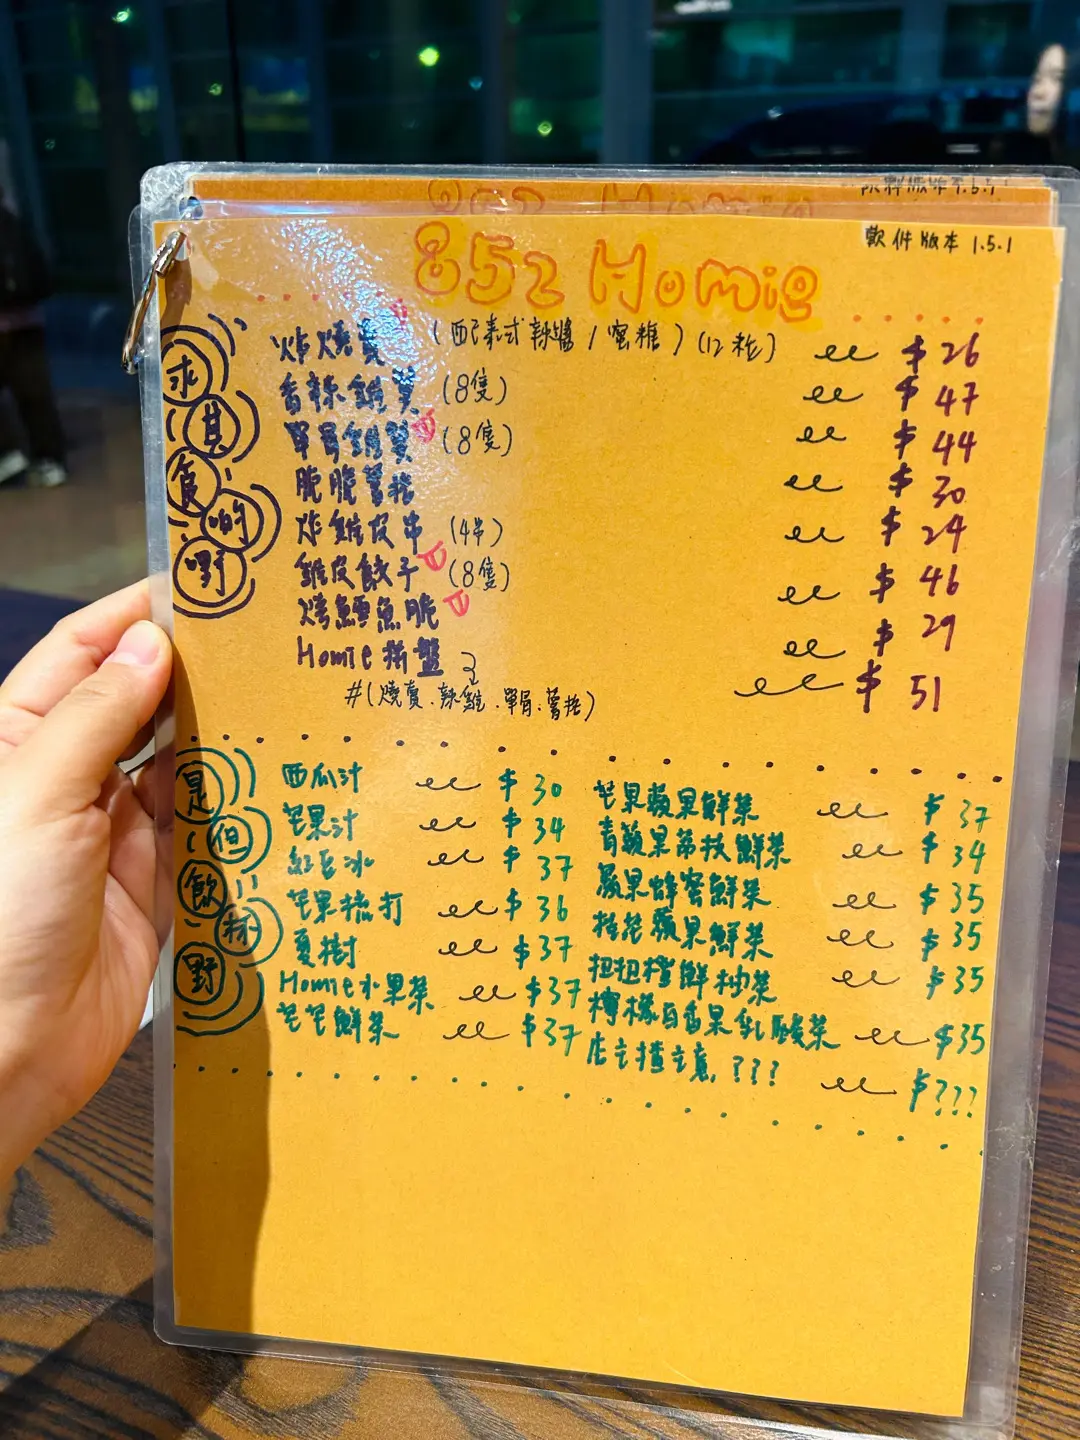 852 Homie
軟件版本 1.5.1
求其食啲嘢
炸燒賣 (配泰式辣醬 / 蜜糖) (12粒) $26
香辣雞翼 (8隻) $47
單骨雞翼 (8隻) $44
脆脆薯格 $30
炸雞皮串 (4串) $24
雞皮餃子 (8隻) $46
烤鱈魚脆 $29
Homie拼盤 $51
#(燒賣.辣雞.單骨.薯格)
是但飲杯野
西瓜汁 $30
芒果汁 $34
紅豆冰 $37
芒果梳打 $36
夏樹 $37
Homie水果茶 $37
芒芒鮮茶 $37
芒果蘋果鮮茶 $37
青蘋果荔枝鮮茶 $34
蘋果蜂蜜鮮茶 $35
桔花蘋果鮮茶 $35
扭扭橙鮮柚茶 $35
檸檬百香果乳酸茶 $35
店主揸主意 ??? $???